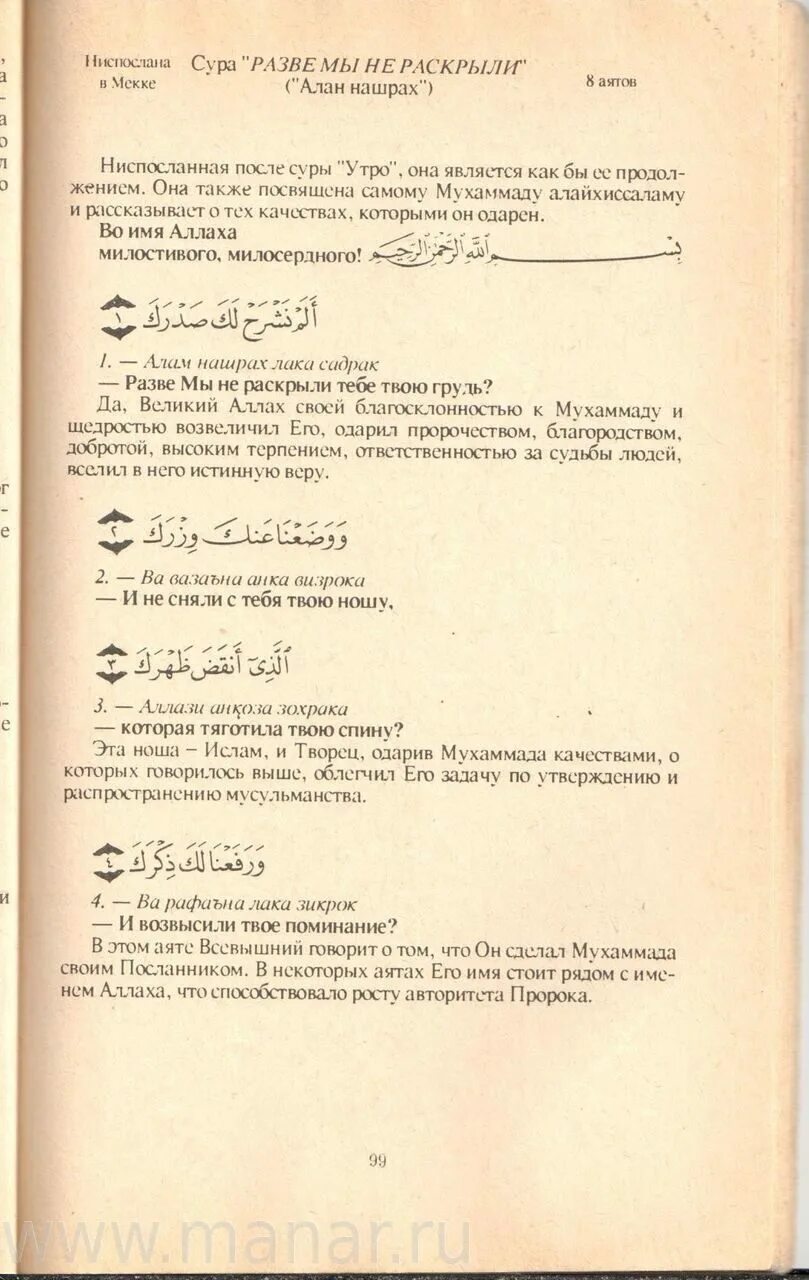 Ниспослана Сура "РАЗВЕ МЫ НЕ РАСКРЫЛИ"
в Мекке ("Алан нашрах") 8 аятов
Ниспосланная после суры "Утро", она является как бы ее продол-
жением. Она также посвящена самому Мухаммаду алайхиссаламу
и рассказывает о тех качествах, которыми он одарен.
Во имя Аллаха
милостивого, милосердного! بِسْمِ اللَّهِ الرَّحْمَٰنِ الرَّحِيمِ
أَلَمْ نَشْرَحْ لَكَ صَدْرَكَ ١
1. — Алам нашрах лака садрак
— Разве Мы не раскрыли тебе твою грудь?
Да, Великий Аллах своей благосклонностью к Мухаммаду и
щедростью возвеличил Его, одарил пророчеством, благородством,
добротой, высоким терпением, ответственностью за судьбы людей,
вселил в него истинную веру.
وَوَضَعْنَا عَنكَ وِزْرَكَ ٢
2. — Ва вазаъна анка визрока
— И не сняли с тебя твою ношу,
الَّذِىٓ أَنقَضَ ظَهْرَكَ ٣
3. — Аллази анқоза зохрака
— которая тяготила твою спину?
Эта ноша – Ислам, и Творец, одарив Мухаммада качествами, о
которых говорилось выше, облегчил Его задачу по утверждению и
распространению мусульманства.
وَرَفَعْنَا لَكَ ذِكْرَكَ ٤
4. — Ва рафаъна лака зикрок
— И возвысили твое поминание?
В этом аяте Всевышний говорит о том, что Он сделал Мухаммада
своим Посланником. В некоторых аятах Его имя стоит рядом с име-
нем Аллаха, что способствовало росту авторитета Пророка.
99
www.manar.ru